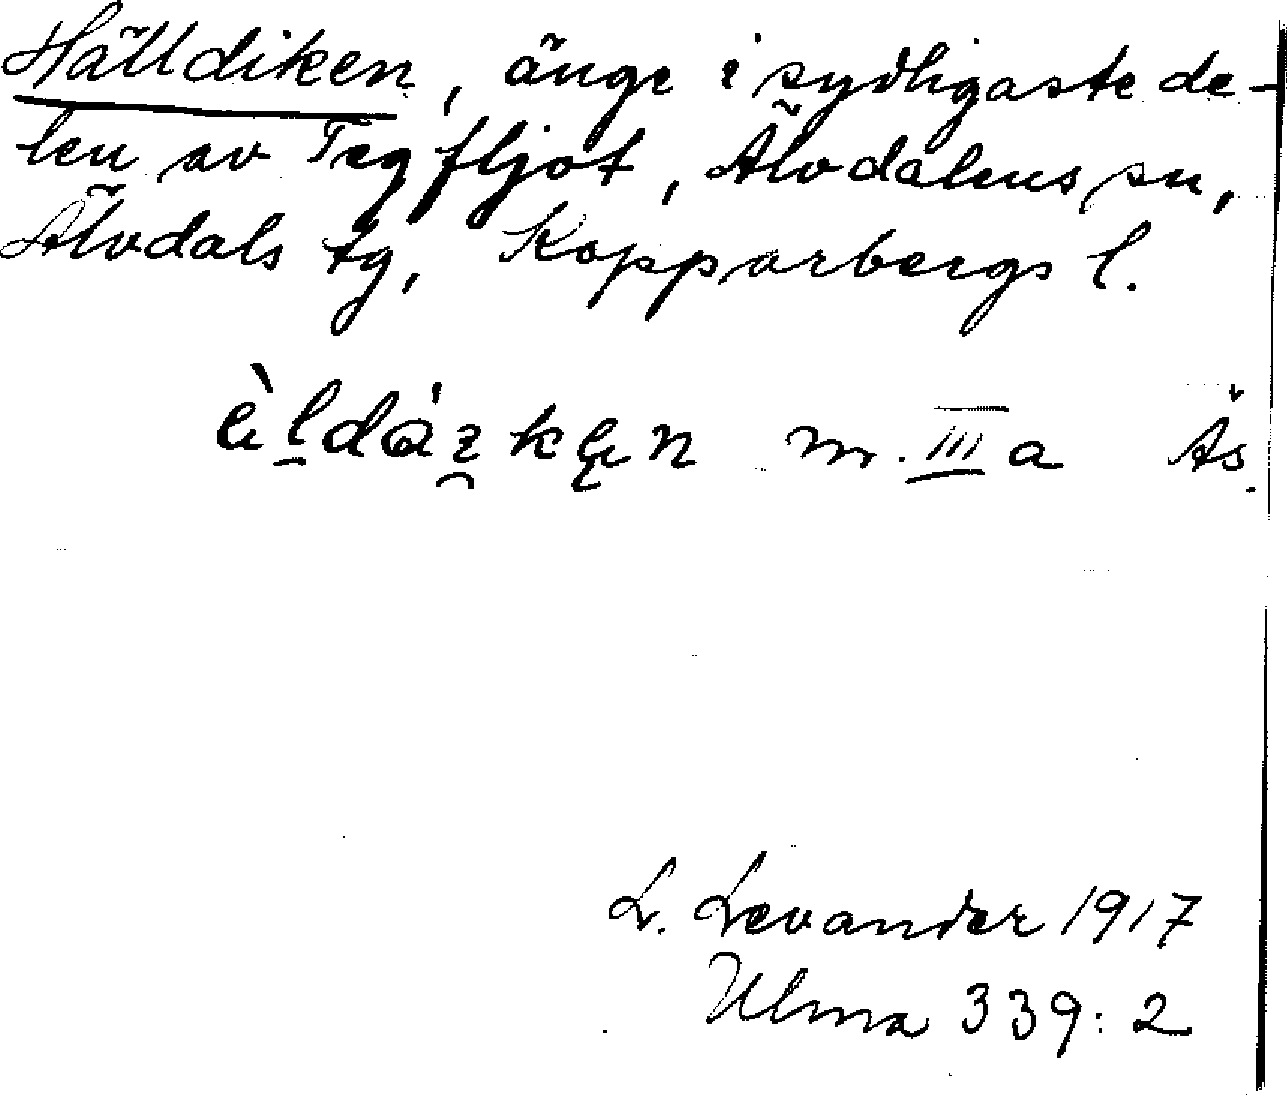 Hälldiken, änge i sydligaste de-
len av Tegfljot, Älvdalens sn,
Älvdals tg, Kopparbergs l.
m. III a Ås.
L. Levander 1917
Ulma 339:2